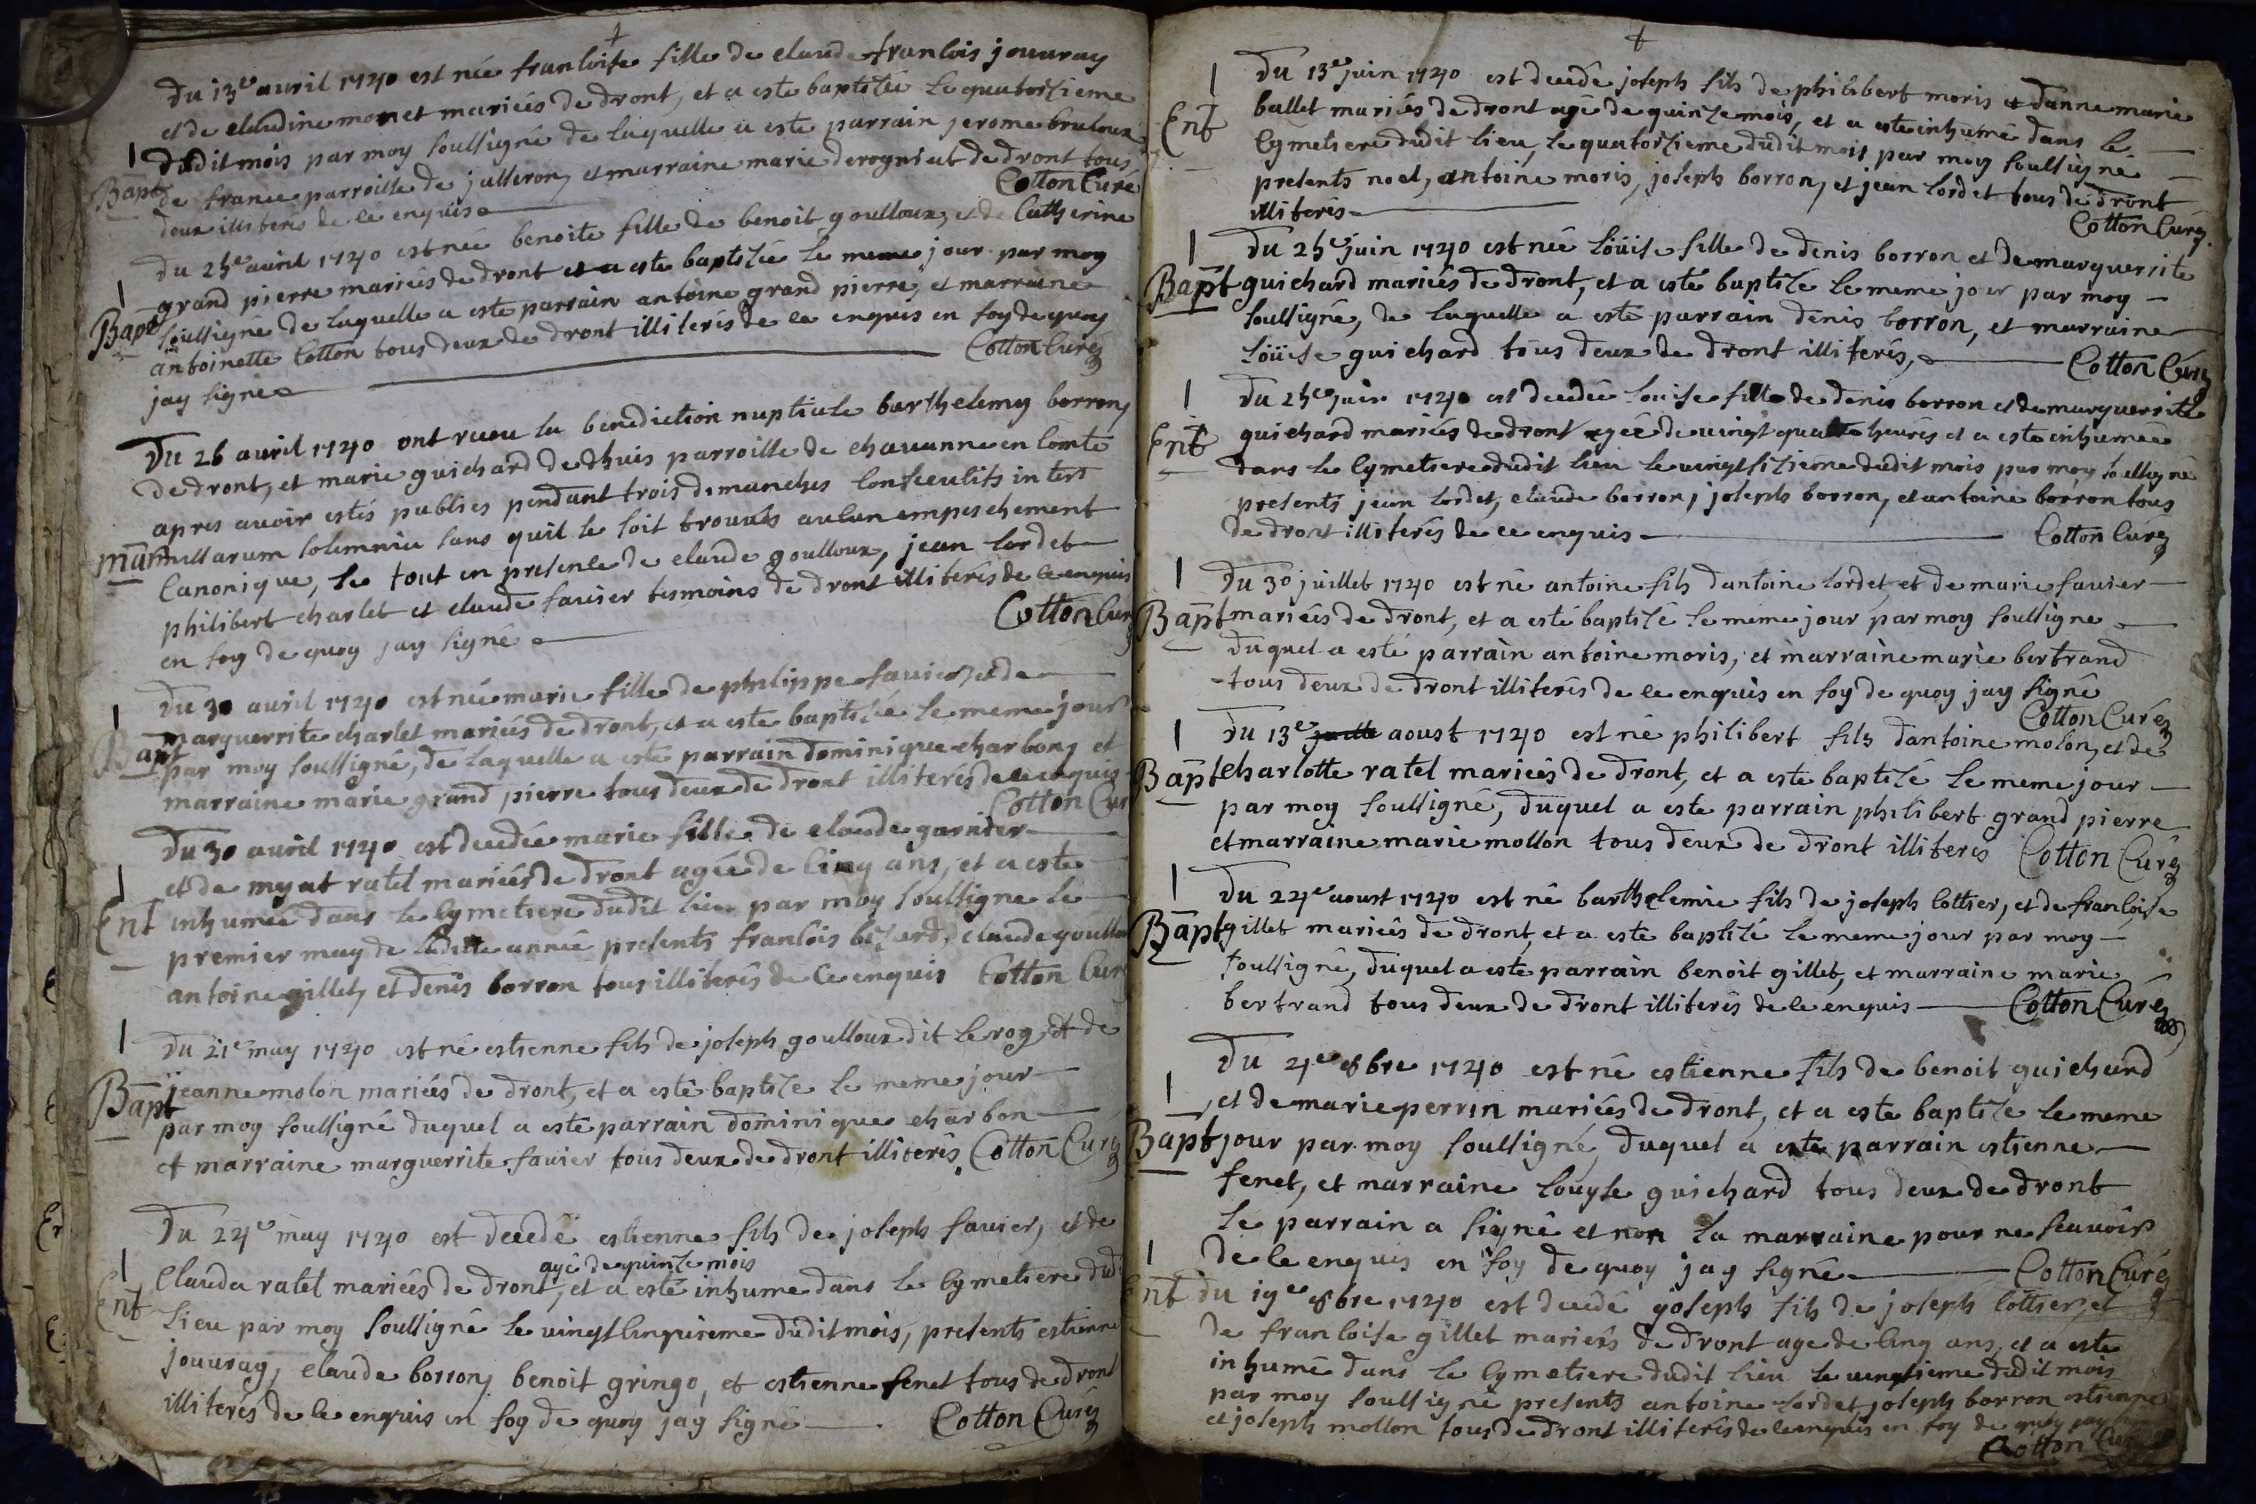 +
Du 13e auril 1740 est née franloise fille de claude franlois jouuray
et de claudine monet mariés de dront, et a este baptisée le quatorsieme
dudit mois par moy soussigné de laquelle a este parrain jerome
1
Bapt de france parroisse de jasseron, et marraine marie derognat de dront tous
deux illiterés de ce enquis Cotton Curé
Du 25e auril 1740 est née benoite fille de benoit goulloux, et de Catherine
1 grand pierre mariés de dront et a este baptisée le meme jour par moy
Bapt soussigné de laquelle a este parrain antoine grand pierre, et marraine
antoinette Cotton tous deux de dront illiterés de ce enquis en foy de quoy
jay signé Cotton Curé
Du 26 auril 1740 ont receu la benediction nuptiale barthelemy borron
de dront, et marie guichard de dhuis parroisse de chauanne en Comté
apres auoir estés publies pendant trois dimanches Conseculifs inter
mar missarum solemnia sans quil se soit trouués aucun empeschement
Canonique, le tout en presence de claude goulloux, jean lordet
philibert charlet et claude fauier tesmoins de dront illiterés de ce enquis
en foy de quoy jay signé Cotton Cur
Du 30 auril 1740 est née marie fille de philippe fauier, et de
1 marguerrite charlet mariés de dront, et a este baptisée le meme jour
Bapt par moy soussigné, de laquelle a este parrain dominique charbon, et
marraine marie grand pierre tous deux de dront illiterés de ce enquis
Cotton Cur
Du 30 auril 1740 est decedée marie fille de claude garnier
1 et de myat ratel mariés de dront agée de Cinq ans, et a este
Ent inhumée dans le Cymetiere dudit lieu par moy soussigne le
premier may de ladite année presents franlois bezard, claude goullou
antoine gillet, et denis borron tous illiterés de Ce enquis Cotton Cur
1 Du 21e may 1740 est né estienne fils de joseph goulloux dit le roy, et de
Bapt jeanne molon mariés de dront, et a esté baptise le meme jour
par moy soussigné duquel a este parrain dominique charbon
et marraine marguerrite fauier tous deux de dront illiterés. Cotton Curé
Du 24e may 1740 est decedé estienne fils de joseph fauier, et de
agé de quinze mois
1 Clauda ratel mariés de dront, et a esté inhume dans le Cymetiere dud
Ent lieu par moy soussigné le uingtCinquieme dudit mois, presents estienne
jouuray, claude borron, benoit gringo, et estienne fenet tous de dront
illiterés de ce enquis en foy de quoy jay signé Cotton Curé
+
1 Du 13e juin 1740 est decedé joseph fils de philibert moris et danne marie
Ent ballet mariés de dront agé de quinze mois, et a este inhumé dans le
Cymetiere dudit lieu, le quatorsieme dudit mois par moy soussigne
presents noel, antoine moris, joseph borron, et jean lordet tous de dront
illiterés Cotton Curé
1 Du 25e juin 1740 est née loüise fille de denis borron et de marguerrite
Bapt guichard mariés de dront, et a esté baptise le meme jour par moy
soussigné, de laquelle a esté parrain denis borron, et marraine
loüise guichard tous deux de dront illiterés, Cotton Curé
1 Du 25e juin 1740 est decedée louise fille de denis borron et de marguerrite
Ent guichard mariés de dront agée de uingt quatre heures et a este inhumée
dans le Cymetiere dudit lieu le uingtsizieme dudit mois par moy soussigné
presents jean lordet, claude borron, joseph borron, et antoine borron tous
de dront illiterés de ce enquis Cotton Curé
1 Du 30 juillet 1740 est né antoine fils dantoine lordet, et de marie fauier
Bapt mariés de dront, et a esté baptisé le meme jour par moy soussigne
duquel a esté parrain antoine moris, et marraine marie bertrand
tous deux de dront illiterés de ce enquis en foy de quoy jay signé
Cotton Curé
1 Du 13e aoust 1740 est né philibert fils dantoine molon, et de
Bapt Charlotte ratel mariés de dront, et a este baptisé le meme jour
par moy soussigné, duquel a este parrain philibert grand pierre
et marraine marie mollon tous deux de dront illiteres Cotton Curé
1 Du 24e aoust 1740 est né barthelemie fils de joseph lottier, et de franloise
Bapt gillet mariés de dront, et a este baptisé le meme jour par moy
soussigné, duquel a este parrain benoit gillet, et marraine marie
bertrand tous deux de dront illiterés de ce enquis Cotton Curé
Du 4e 8bre 1740 est né estienne fils de benoit guichard
1 et de marie perrin mariés de dront, et a este baptise le meme
Bapt jour par moy soussigné, duquel a este parrain estienne
fenet, et marraine louyse guichard tous deux de dront
le parrain a signé et non la marraine pour ne scauoir
1 de ce enquis en foy de quoy jay signé Cotton Curé
Ent du 19e 8bre 1740 est decedé yoseph fils de joseph lottier, et
de franloise gillet mariés de dront age de Cinq ans, et a este
inhumé dans le Cymetiere dudit lieu le uingtieme dudit mois
par moy soussigné presents antoine lordet joseph borron estienne
et joseph mollon tous de dront illiterés de ce enquis en foy de quoy jay
Cotton Curé